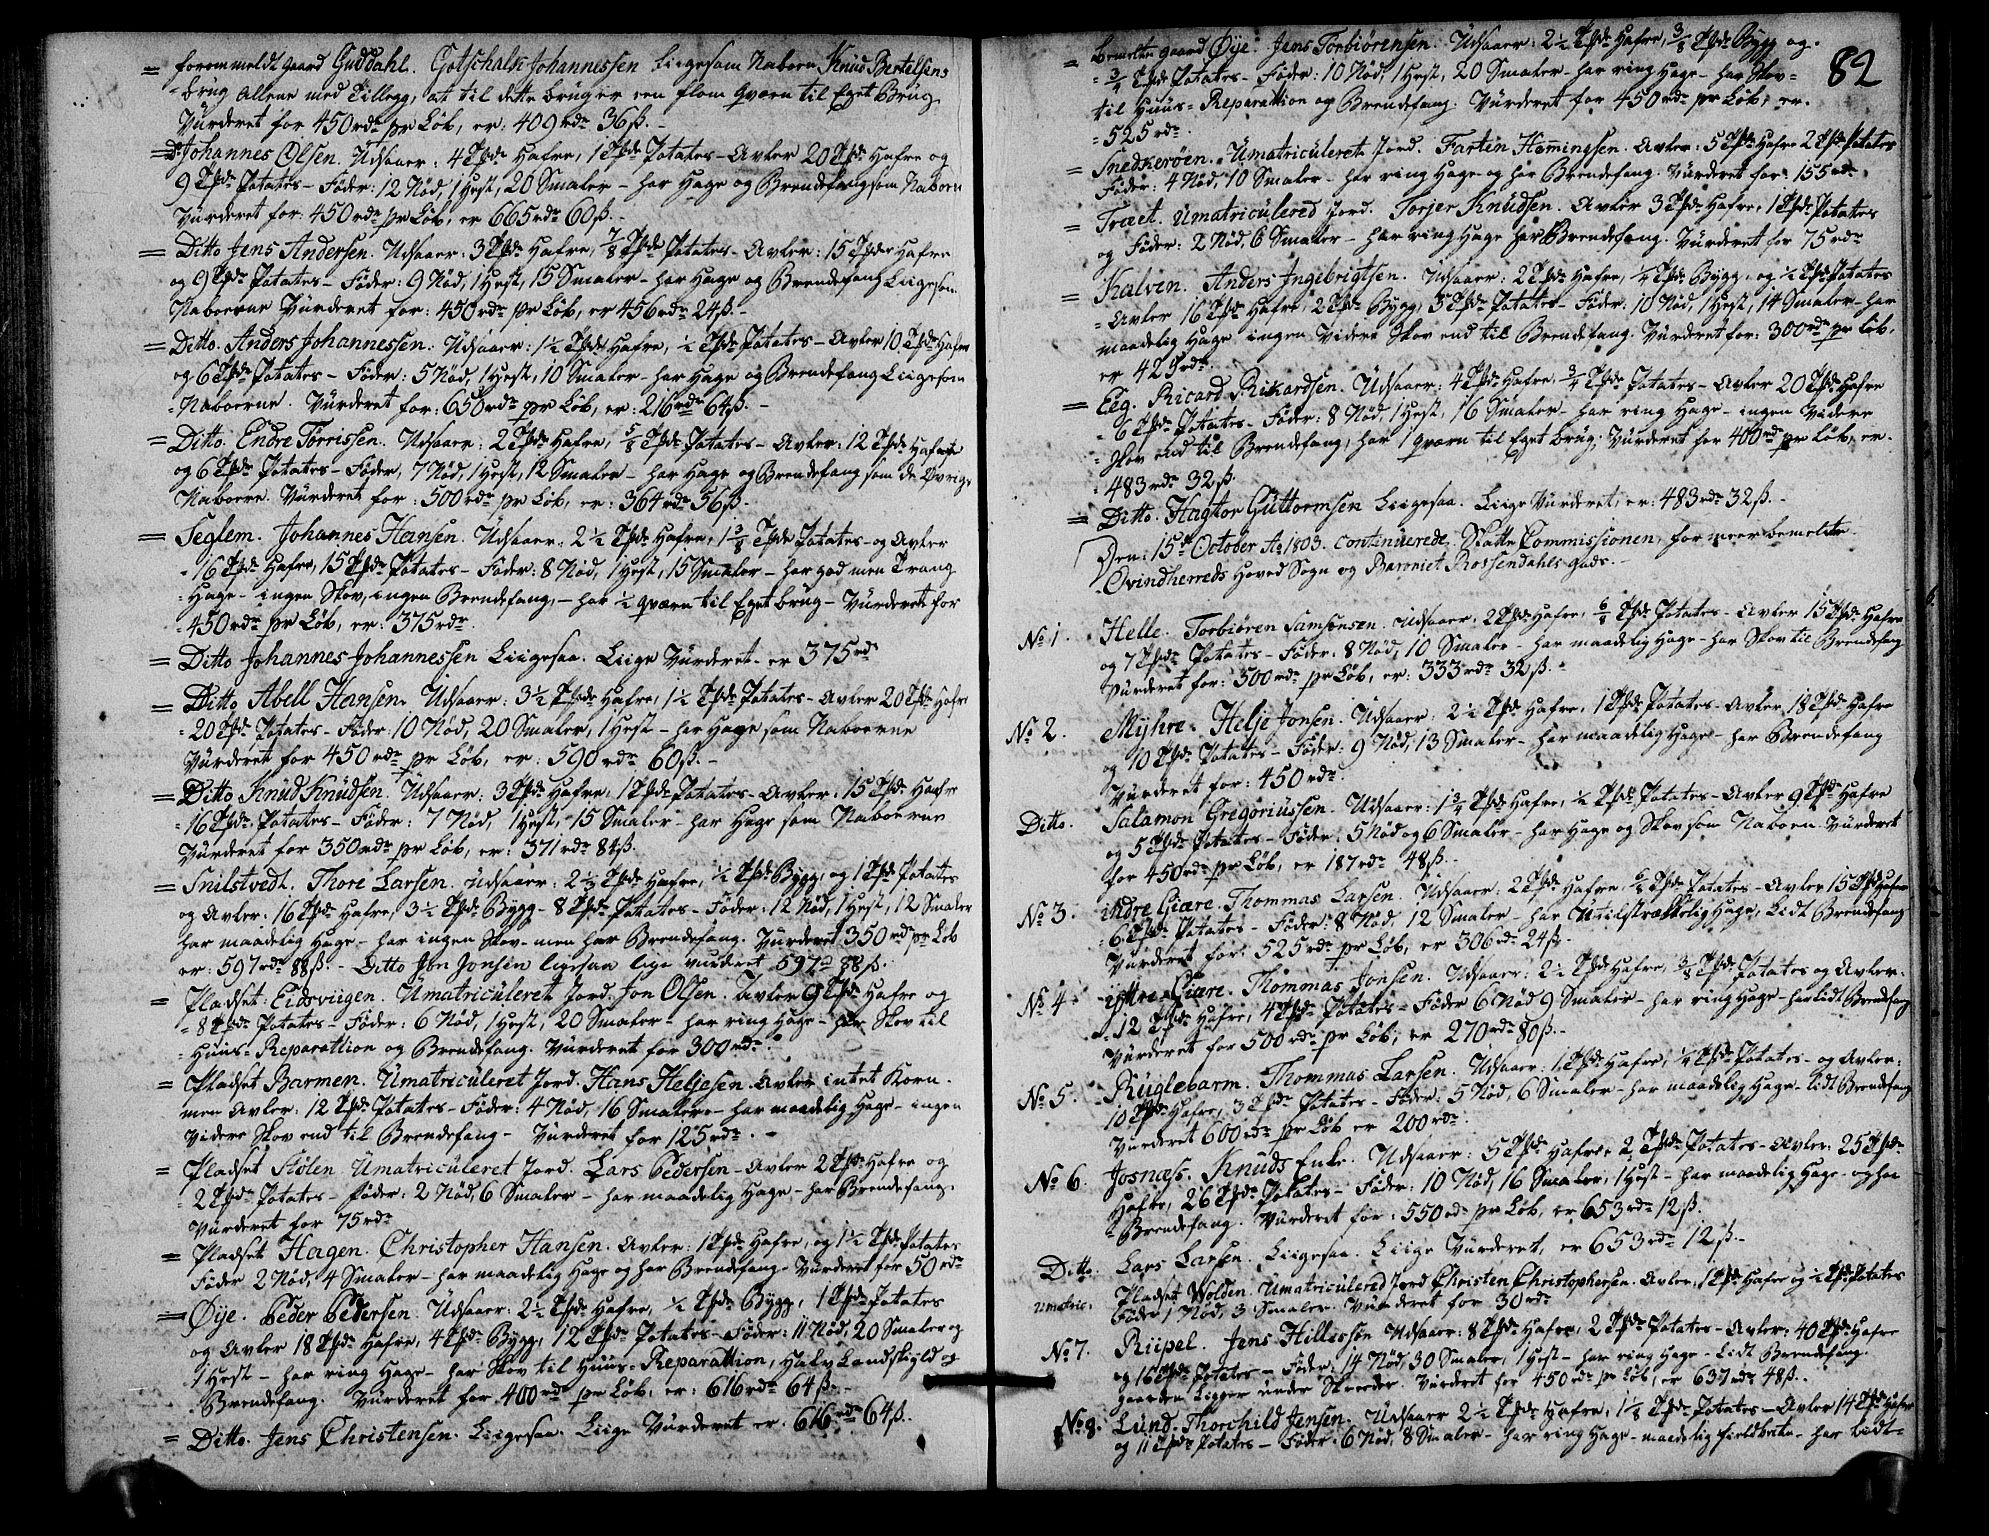 = forommeldt gaard Guddahl. Gotschalk Johannessen liigesom Naboen Knud Bertelsens
brug allene med Tillegg, at til dette brug er een flom qværn til Eget Brug.
Vurderet for 450 rdr pr Løb, er: 409 rdr 36 ß.
= Do Johannes Olsen. Udsaaer: 4 Tdr Hafre, 1 Tdr Potates - Avler 20 Tdr Hafre og
9 Tdr Potates - Føder: 12 Nød, 1 Hest, 20 Smaler - har Hage og Brendefang som Naboen
Vurderet for: 450 rdr pr Løb, er 665 rdr 60 ß.
= Ditto Jens Andersen. Udsaaer: 3 Tdr Hafre, 7/8 Tdr Potates - Avler: 15 Tdr Hafre
og 9 Tdr Potates - Føder: 9 Nød, 1 Hest, 15 Smaler - har Hage og Brendefang Liigesom
Naboerne Vurderet for: 450 rdr pr Løb, er 456 rdr 24 ß.
= Ditto. Anders Johannessen. Udsaaer: 1½ Tdr Hafre, ½ Tdr Potates - Avler 10 Tdr Hafre
og 6 Tdr Potates - Føder: 5 Nød, 1 Hest, 10 Smaler - har Hage og Brendefang Liigesom
Naboerne. Vurderet for: 650 rdr pr Løb, er: 216 rdr 64 ß.
= Ditto. Endre Torrissen. Udsaaer: 2 Tdr Hafre, 5/8 Tdr Potates - Avler: 12 Tdr Hafre
og 6 Tdr Potates - Føder, 7 Nød, 1 Hest, 12 Smaler - har Hage og Brendefang som de Øvrige
Naboerne. Vurderet for: 500 rdr pr Løb, er: 364 rdr 56 ß.
= Seglem. Johannes Hansen. Udsaaer: 2½ Tdr Hafre, 1 3/8 Tdr Potates - og Avler
16 Tdr Hafre, 15 Tdr Potates - Føder: 8 Nød, 1 Hest, 15 Smaler - har god men Trang
Hage - ingen Skov, ingen Brendefang, - har ½ qværn til Eget brug - Vurderet for
450 rdr pr Løb, er: 375 rdr.
= Ditto Johannes Johannessen Liigesaa. Liige Vurderet er 375 rdr
= Ditto Abell Hansen. Udsaaer: 3½ Tdr Hafre, 1½ Tdr Potates - Avler 20 Tdr Hafre
20 Tdr Potates - Føder: 10 Nød, 20 Smaler, 1 Hest - har Hage som Naboerne
Vurderet for 450 rdr pr Løb, er: 590 rdr 60 ß.
= Ditto Knud Knudsen. Udsaaer: 3 Tdr Hafre, 1 Tdr Potates - Avler: 15 Tdr Hafre
16 Tdr Potates - Føder: 7 Nød, 1 Hest, 15 Smaler - har Hage som Naboerne
Vurderet for 350 rdr pr Løb, er: 371 rdr 84 ß.
= Snilstvedt. Thore Larsen. Udsaaer: 2½ Tdr Hafre, ½ Tdr Bygg, og 1 Tdr Potates
og Avler: 16 Tdr Hafre, 3½ Tdr Bygg - 8 Tdr Potates - Føder: 12 Nød, 1 Hest, 12 Smaler
har maadelig Hage - har ingen Skov - men har Brendefang. Vurderet 350 rdr pr Løb
er: 597 rdr 88 ß. - Ditto Jon Jonsen ligesaa lige vurderet 597 rd 88 ß.
= Pladset Eidsviigen. Umatriculeret Jord. Jon Olsen. Avler 9 Tdr Hafre og
8 Tdr Potates - Føder: 6 Nød, 1 Hest, 20 Smaler - har ring Hage - har Skov til
Huus-Reparattion og Brendefang. Vurderet for 300 rdr.
= Pladset Barmen. Umatriculeret Jord. Hans Heljesen Avler intet Korn.
men Avler: 12 Tdr Potates - Føder: 4 Nød, 16 Smaler - har maadelig Hage - ingen
Videre Skov end til Brendefang - Vurderet for 125 rdr.
= Pladset Stølen Umatriculeret Jord. Lars Pedersen - Avler 2 Tdr Hafre og
2 Tdr Potates - Føder: 2 Nød, 6 Smaler - har maadelig Hage - har Brendefang.
Vurderet for 75 rdr
= Pladset Hagen. Christopher Hansen. Avler: 1 Tdr Hafre, og 1½ Tdr Potates
Føder 2 Nød, 4 Smaler - har maadelig Hage og har Brendefang - Vurderet for 50 rdr
= Øije. Peder Pedersen. Udsaaer: 2½ Tdr Hafre, ½ Tdr Bygg, 1 Tdr Potates
og Avler 18 Tdr Hafre, 4 Tdr Bygg, 12 Tdr Potates - Føder: 11 Nød, 20 Smaler og
1 Hest - har ring Hage - har Skov til Huus-Reparattion, Halv Landskyld og
Brendefang. Vurderet for 400 rdr pr Løb, er: 616 rdr 64 ß.
= Ditto. Jens Christensen. Liigesaa. Liige Vurderet er: 616 rdr 64 ß.
82
= bemelte gaard Øije. Jens Torbiørensen. Udsaaer: 2½ Tdr Hafre, 3/8 Tdr Bygg og
3/4 Tdr Potates - Føder: 10 Nød, 1 Hest, 20 Smaler - har ring Hage - har Skov
til Huus-Reparattion og Brendefang. Vurderet for 450 rdr pr Løb, er.
525 rdr.
= Snedkerøen. Umatriculeret Jord. Farten Hemingsen. Avler: 5 Tdr Hafre 2 Tdr Potates
Føder: 4 Nød, 10 Smaler - har ring Hage og har Brendefang. Vurderet for: 155 rdr.
= Træet. Umatriculered Jord. Torjer Knudsen. Avler 3 Tdr Hafre, 1 Tdr Potates
og Føder: 2 Nød, 6 Smaler - har ring Hage har Brendefang. Vurderet for 75 rdr
= Kalven. Anders Ingebrigtsen. Udsaaer: 2 Tdr Hafre, ¼ Tdr Bygg, og ½ Tdr Potates
Avler 16 Tdr Hafre, 2 Tdr Bygg, 5 Tdr Potates - Føder: 10 Nød, 1 Hest, 14 Smaler - har
maadelig Hage ingen Videre Skov end til Brendefang. Vurderet for: 300 rdr pr Løb,
er 425 rdr.
= Eeg. Ricard Rikardsen. Udsaaer: 4 Tdr Hafre, 3/4 Tdr Potates - Avler 20 Tdr Hafre
6 Tdr Potates - Føder: 8 Nød, 1 Hest, 16 Smaler - har ring Hage - ingen Videre
Skov end til Brendefang, har 1 qværn til Eget brug. Vurderet for 400 rdr pr Løb, er.
483 rdr 32 ß.
= Ditto. Hagtor Guttormsen Liigesaa. Liige Vurderet, er: 483 rdr 32 ß.
Den: 15de October Ao 1803. continuerede Skatte Commissionen, for meer bemeldte
Qvindherreds Hoved Sogn og Baroniet Rossendahls gods.
No 1. Helle. Torbiøren Samsonsen. Udsaaer: 2 Tdr Hafre, Tdr Potates - Avler 15 Tdr Hafre
og 7 Tdr Potates - Føder: 8 Nød, 10 Smaler - har maadelig Hage - har Skov til Brendefang
Vurderet for: 500 rdr pr Løb, er: 333 rdr 32 ß.
No 2. Myhre. Helje Jonsen. Udsaaer: 2½ Tdr Hafre, 1 Tdr Potates - Avler 18 Tdr Hafre
og 10 Tdr Potates - Føder: 9 Nød, 13 Smaler - har maadelig Hage - har Brendefang
Vurderet for: 450 rdr.
Ditto. Salamon Gregoriussen. Udsaaer: 1 3/4 Tdr Hafre, ½ Tdr Potates - Avler 9 Tdr Hafre
og 5 Tdr Potates - Føder: 5 Nød og 6 Smaler - har Hage og Skov som Naboen. Vurderet
for 450 rdr pr Løb, er 187 rdr 48 ß.
No 3. indre Giære. Thommas Larsen. Udsaaer: 2 Tdr Hafre, Tdr Potates - Avler 15 Tdr Hafre
6 Tdr Potates - Føder: 8 Nød, 12 Smaler - har Utilstrækkelig Hage, Lidt Brendefang
Vurderet for: 525 rdr pr Løb, er 306 rdr 24 ß.
No 4 yttre Giære. Thommas Jonsen. Udsaaer: 2½ Tdr Hafre, 3/8 Tdr Potates og Avler
12 Tdr Hafre, 4 Tdr Potates - Føder 6 Nød 9 Smaler - har ring Hage - har lidt Brendefang
Vurderet for 500 rdr pr Løb, er 270 rdr 80 ß.
No 5. Ruglebarm. Thommas Larsen. Udsaaer: 1 Tdr Hafre, ¼ Tdr Potates - og Avler:
10 Tdr Hafre, 3 Tdr Potates - Føder: 5 Nød, 6 Smaler - har maadelig Hage - Lidt Brendefang
Vurderet 600 rdr pr Løb er 200 rdr.
No 6. Josnæs. Knuds Enke. Udsaaer: 5 Tdr Hafre, 2 Tdr Potates - Avler: 25 Tdr
Hafre, 26 Tdr Potates - Føder: 10 Nød, 16 Smaler, 1 Hest - har maadelig Hage - og har
Brendefang. Vurderet for: 550 rdr pr Løb, er 653 rdr 12 ß.
Ditto. Lars Larsen. Liigesaa. Liige Vurderet, er 653 rdr 12 ß.
Umatric. Pladset Wolden. Umatriculered Jord Christen Christophersen. Avler: 1 Tdr Hafre og ½ Tdr Potates
Føder 1 Nød, 3 Smaler. Vurderet for 30 rdr
No 7. Riipel. Jens Hillessøn Udsaaer: 8 Tdr Hafre, 2 Tdr Potates - Avler: 40 Tdr Hafre
og 16 Tdr Potates - Føder: 14 Nød 30 Smaler, 1 Hest - har ring Hage - Lidt Brendefang.
Gaarden Ligger under Skreeder. Vurderet for 450 rdr pr Løb, er 637 rdr 48 ß.
No 8. Lund. Thorchild Jensen. Udsaaer 2½ Tdr Hafre, 1 1/8 Tdr Potates - Avler 14 Tdr Hafre
og 11 Tdr Potates - Føder: 6 Nød, 8 Smaler - har ring Hage - maadelig fieldbeite - har lidt